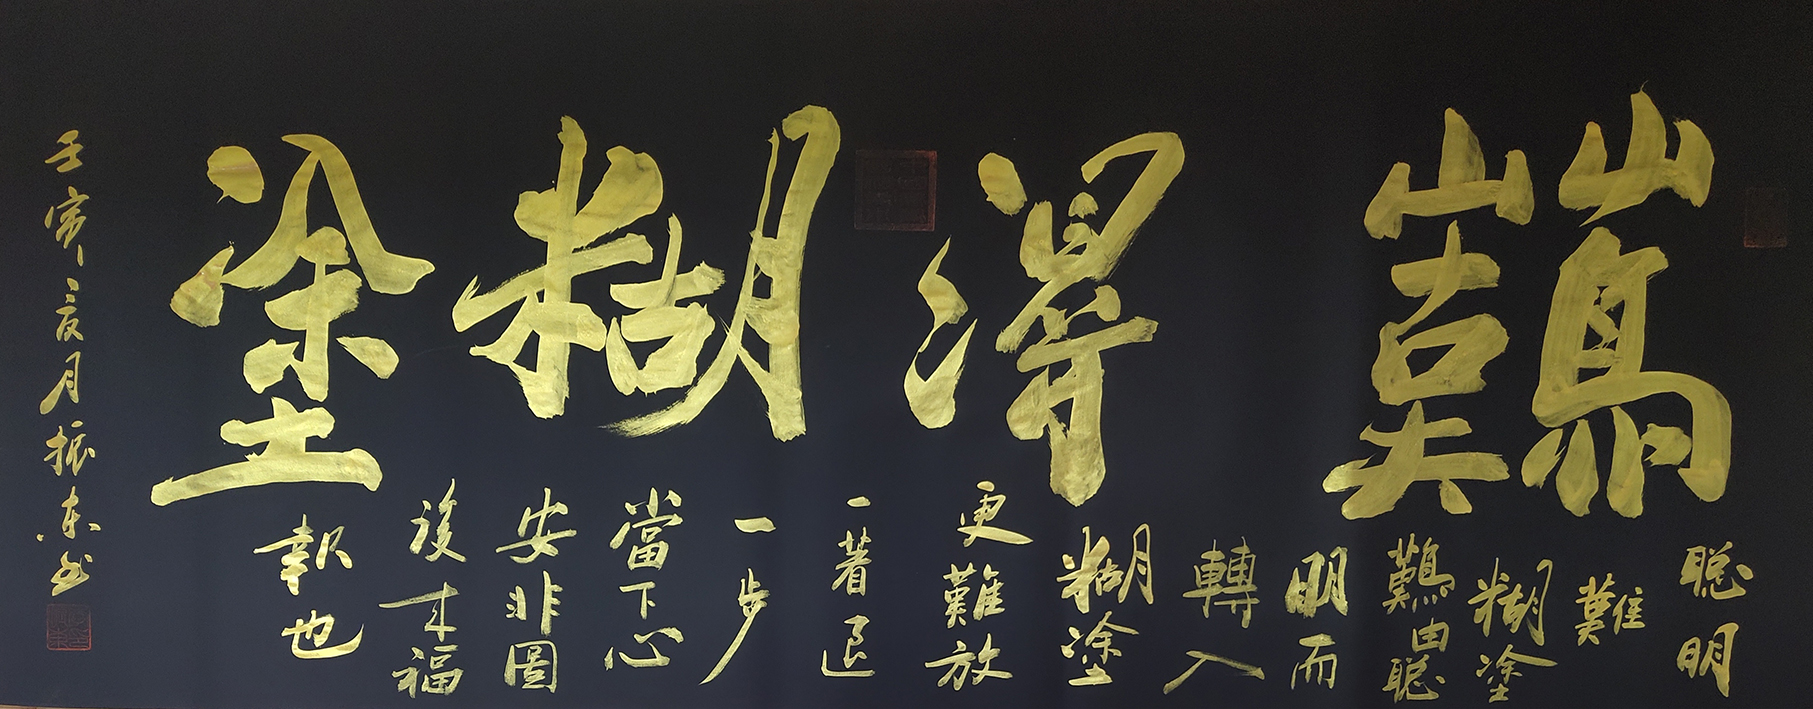 難得糊塗
聰明
難
糊塗
難由聰
明而
轉入
糊塗
更難放
一著退
一步
當下心
安非圖
後來福
報也
壬寅年夏月振東書